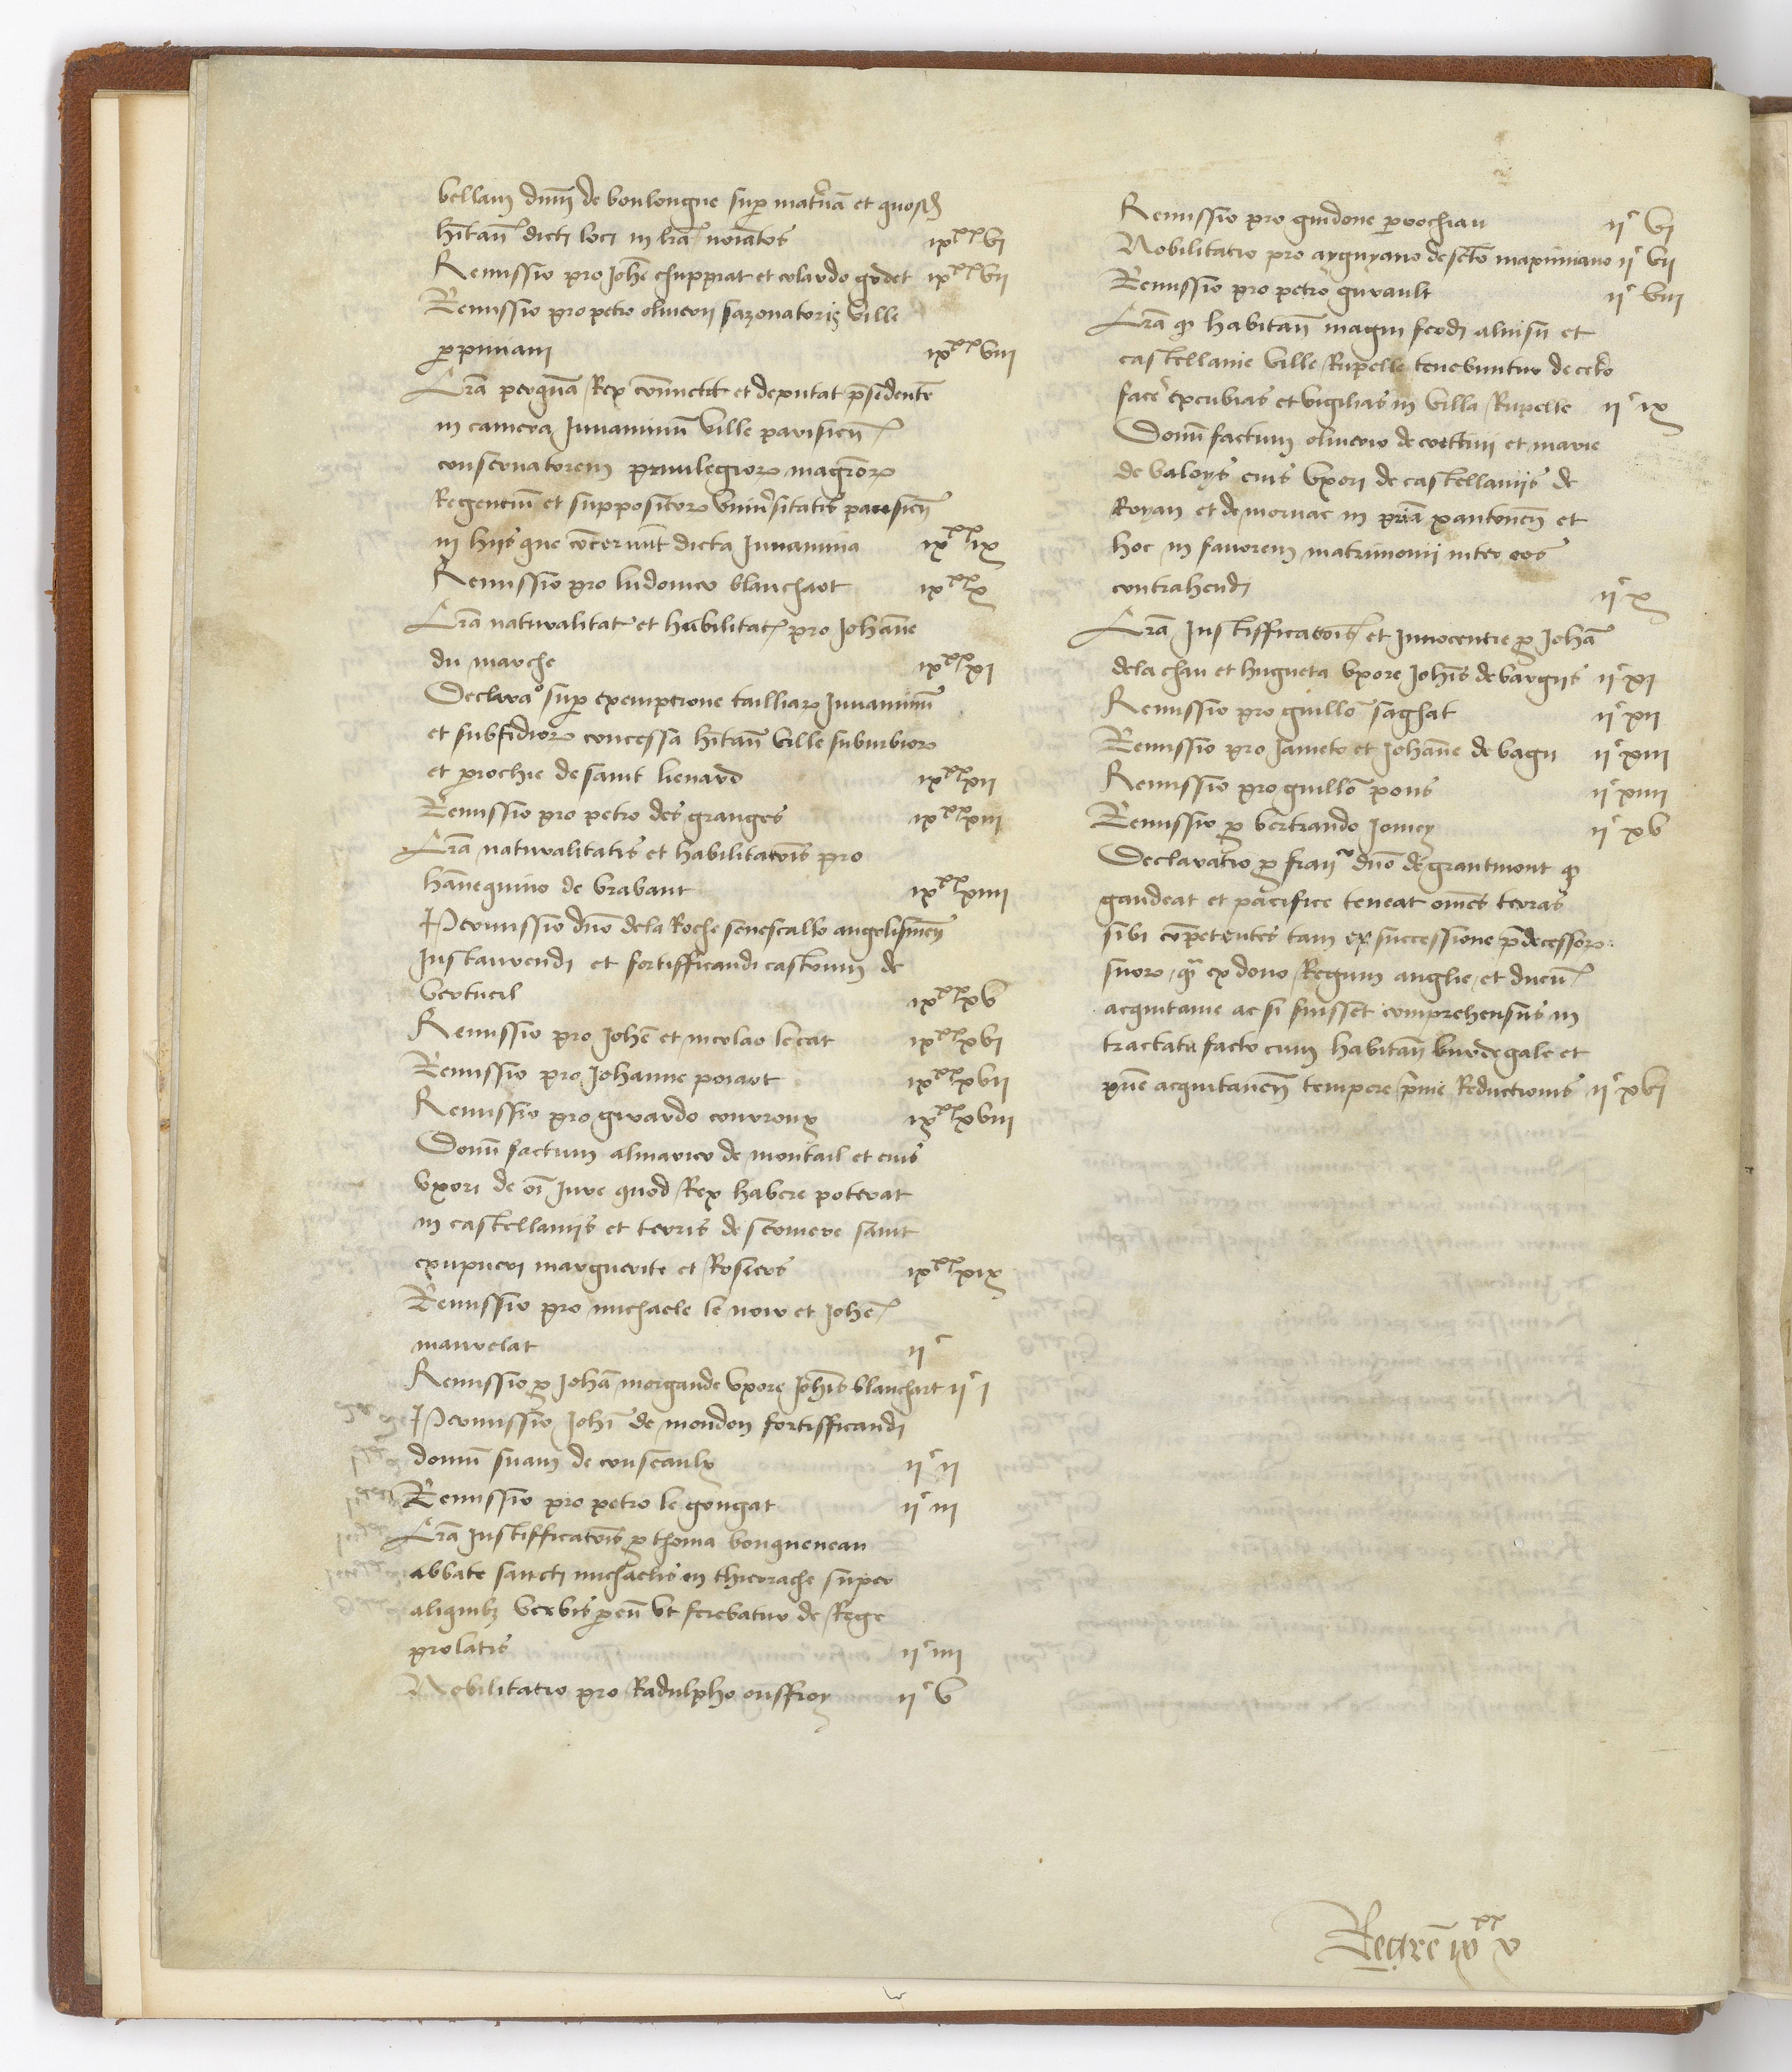 bellam dnm de boulongne sup maťnā et quosd
hitan dicti loci in lrā noiatos ixˣˣvi
Remissio pro Johē chupprat et colardo godet ixˣˣvii
Remissio pro petro oliverii sazonatoris ville
ppiniani ixˣˣviii
Lrā per quā Rex cōmictit et deputat psidentē
in camera Juvaminū ville parisien
conservatorem privilegior magror
Regentiū et suppositor universitatis parisien
in hiis que cōcernunt dicta Juvamina ixˣˣix
Remissio pro ludovico blanchart ixˣˣx
Lrā naturalitat et habilitac pro Johāne
du marche ixˣˣxi
Declarao sup exemptione talliar Juvaminū
et subsidior concessa hitan ville suburbior
et prochie de saint lienard ixˣˣxii
Remissio pro petro des granges ixˣˣxiii
Lrā naturalitatis et habilitatois pro
hānequino de brabant ixˣˣxiiii
Permissio dno de la Roche senescallo angolismen
Instaurendi et fortifficandi castrum de
vertueil ixˣˣxv
Remissio pro Johē et nicolao le cat ixˣˣxvi
Remissio pro Johanne poiart ixˣˣxvii
Remissio pro girardo couroux ixˣˣxviii
Donū factum almarico de montail et eius
uxori de oī Jure quod Rex habere poterat
in castellaniis et terris de somiere saint
exupueri marguerite et Rosiers ixˣˣxix
Remissio pro michaele le noir et Johē
maurelat iiᶜ
Remissio p Johā morgande uxore Johis blanchart iiᶜi
Permissio Johi de moudon fortifficandi
domū suam de conseaulx iiᶜii
Remissio pro petro le gougat iiᶜiii
Lrā Justifficatois p thoma bouqueneau
abbate sancti michaelis in thierache super
aliquibz verbis p eū ut ferebatur de Rege
prolatis iiᶜiiii
Nobilitatio pro Radulpho onffroy iiᶜv
Remissio pro guidone prochau iiᶜvi
Nobilitatio pro ayguyano de scto maximiano iiᶜvii
Remissio pro petro gurault iiᶜviii
Lrā q habitan magni feodi alnisii et
castellanie ville Rupelle tenebuntur de cetō
facē excubias et vigilias in villa Rupelle iiᶜix
Donū factum oliverio de coettivi et marie
de valoys eius uxori de castellaniis de
Royan et de mornac in priā xantonen et
hoc in favorem matrimonii inter eos
contrahendi iiᶜx
Lrā Justifficatois et Innocentie p Johā
de la chau et hugueta uxore Johis de bargiis iiᶜxi
Remissio pro guillo saghat iiᶜxii
Remissio pro Jameto et Johāne de bagu iiᶜxiii
Remissio pro guillo pons iiᶜxiiii
Remissio p bertrando Jomey iiᶜxv
Declaratio p fran dno de grantmont q
gaudeat et pacifice teneat omēs terras
sibi cōpetentes tam ex successione pdecessor
suor, qm ex dono Regum anglie et ducū
acquitanie ac si fuisset comprehensus in
tractatu facto cum habitan burdegale et
prie acquitanen tempore prime Reductionis iiᶜxvi